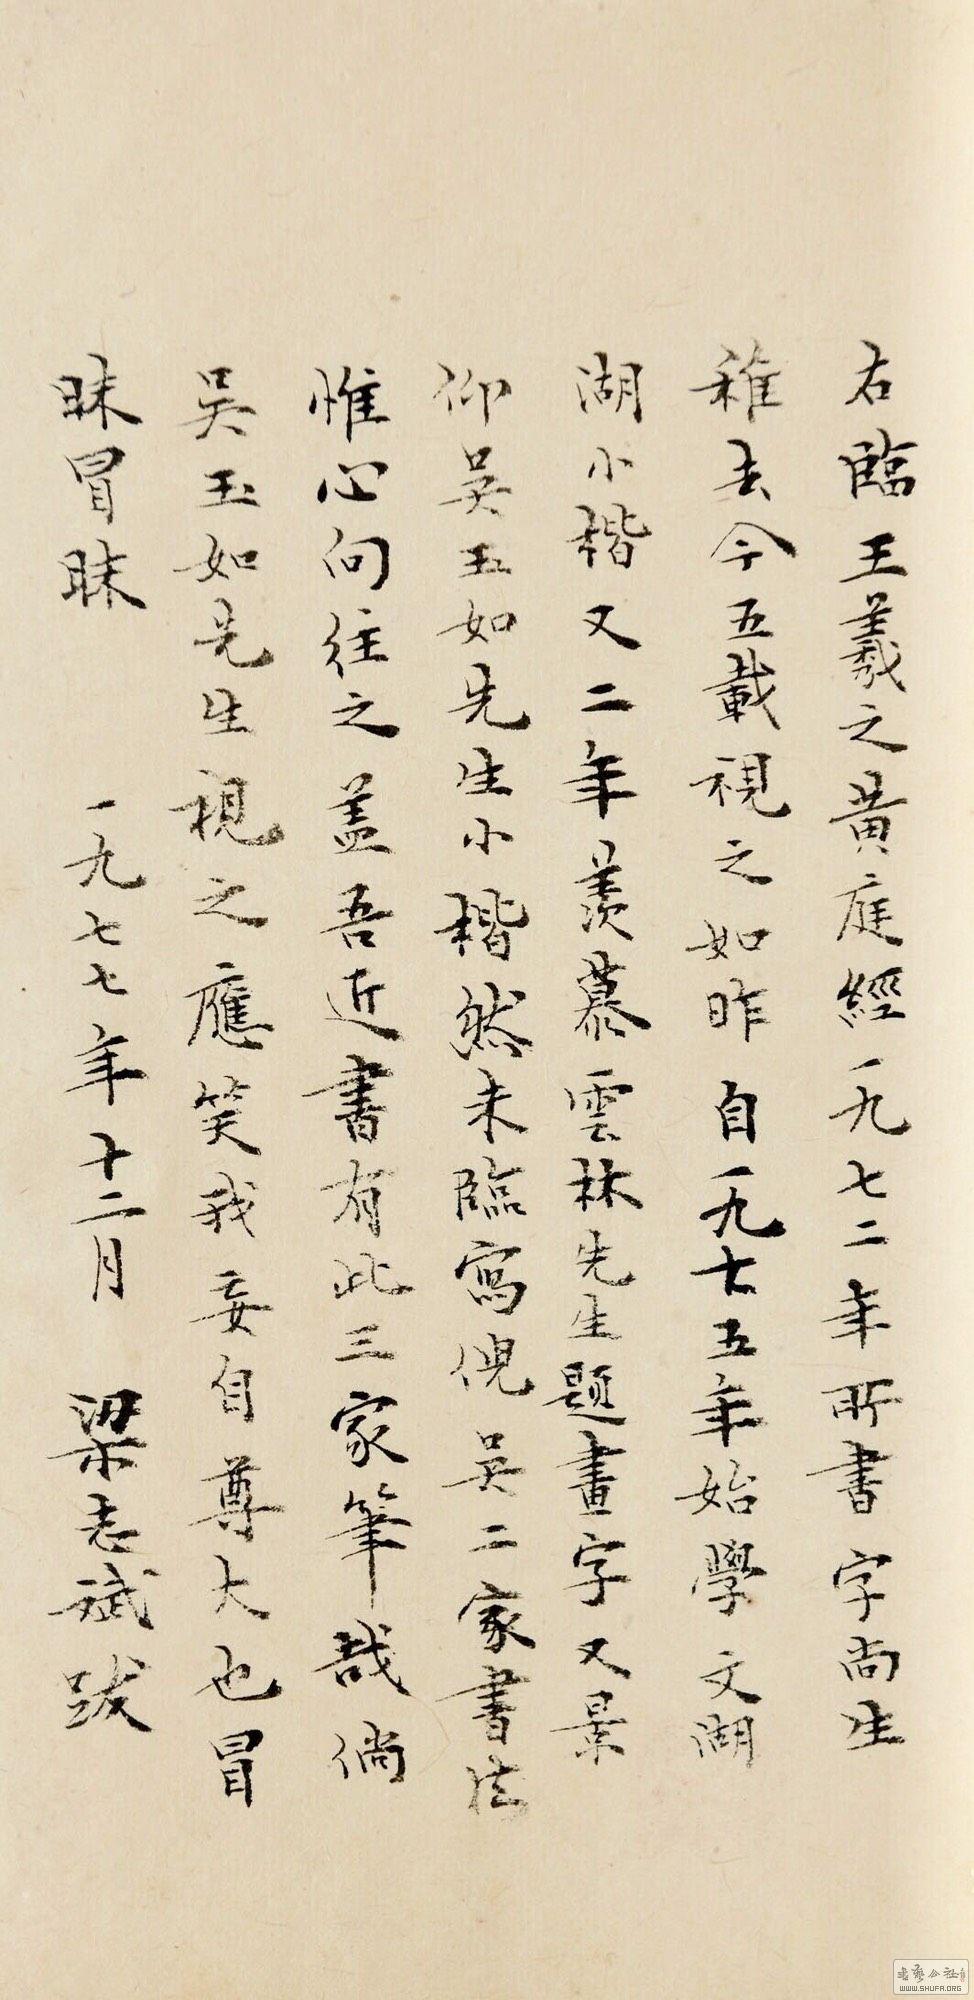 右臨王羲之黄庭經一九七二年所書字尚生
稚去今五載視之如昨自一九七五年始學文湖
湖小楷又二年羡慕雲林先生題畫字又景
仰吴玉如先生小楷然未臨寫倪吴二家書法
惟心向往之盖吾近書有此三家筆哉倘
吴玉如先生視之應笑我妄自尊大也冒
昧冒昧 一九七七年十二月 梁志斌跋
書藝公社
WWW.SHUFA.ORG